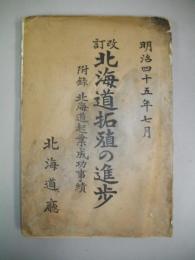 明治四十五年七月
改訂 北海道拓殖の進步
附錄 北海道起業と成功事績
北海道廳